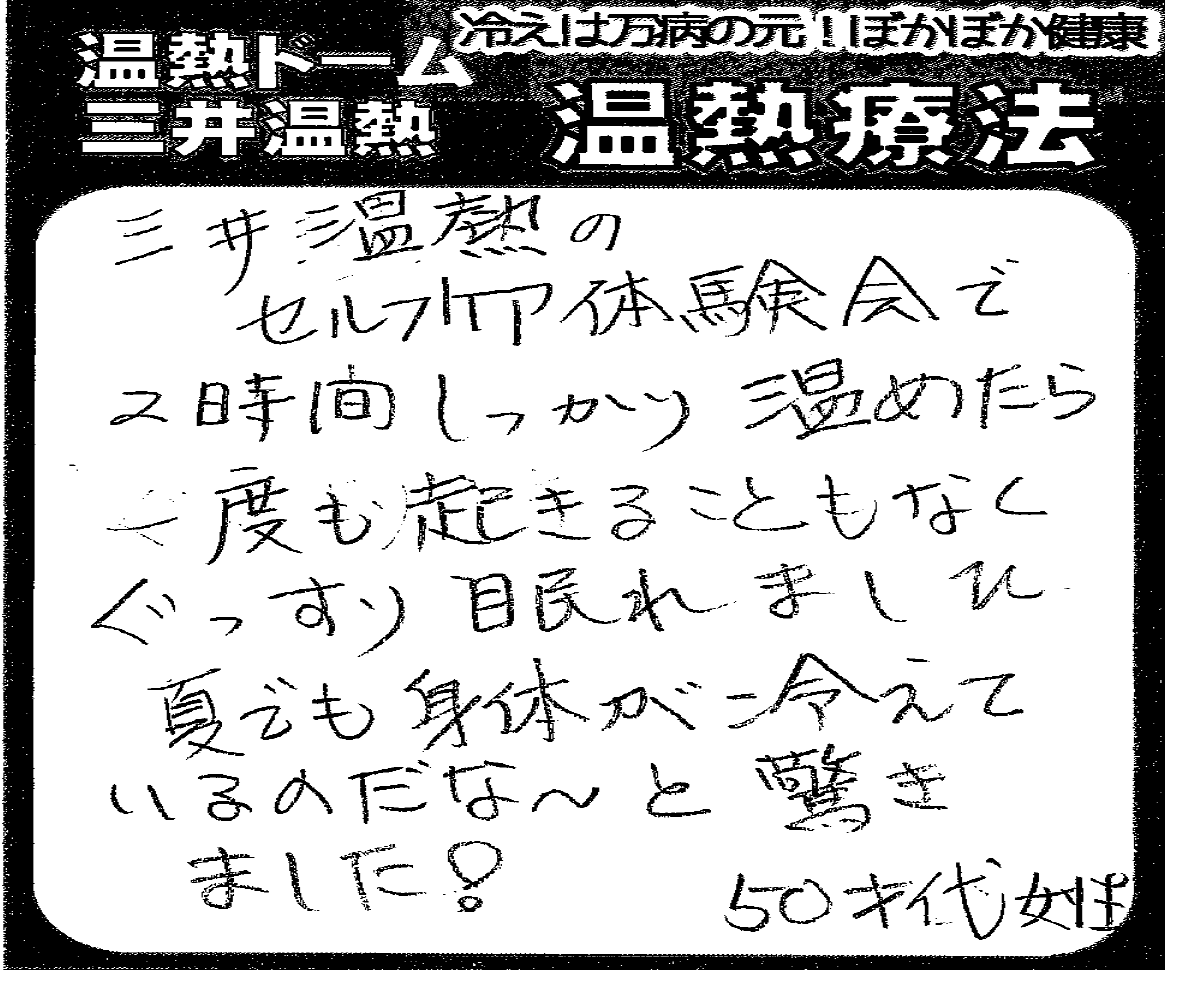 冷えは万病の元!ぽかぽか健康
温熱ドーム
三井温熱
温熱療法
三井温熱の
セルフケア体験会で
2時間しっかり温めたら
一度も起きることもなく
ぐっすり眠れました
夏でも身体が冷えて
いるのだな〜と驚き
ました!
50才代女性